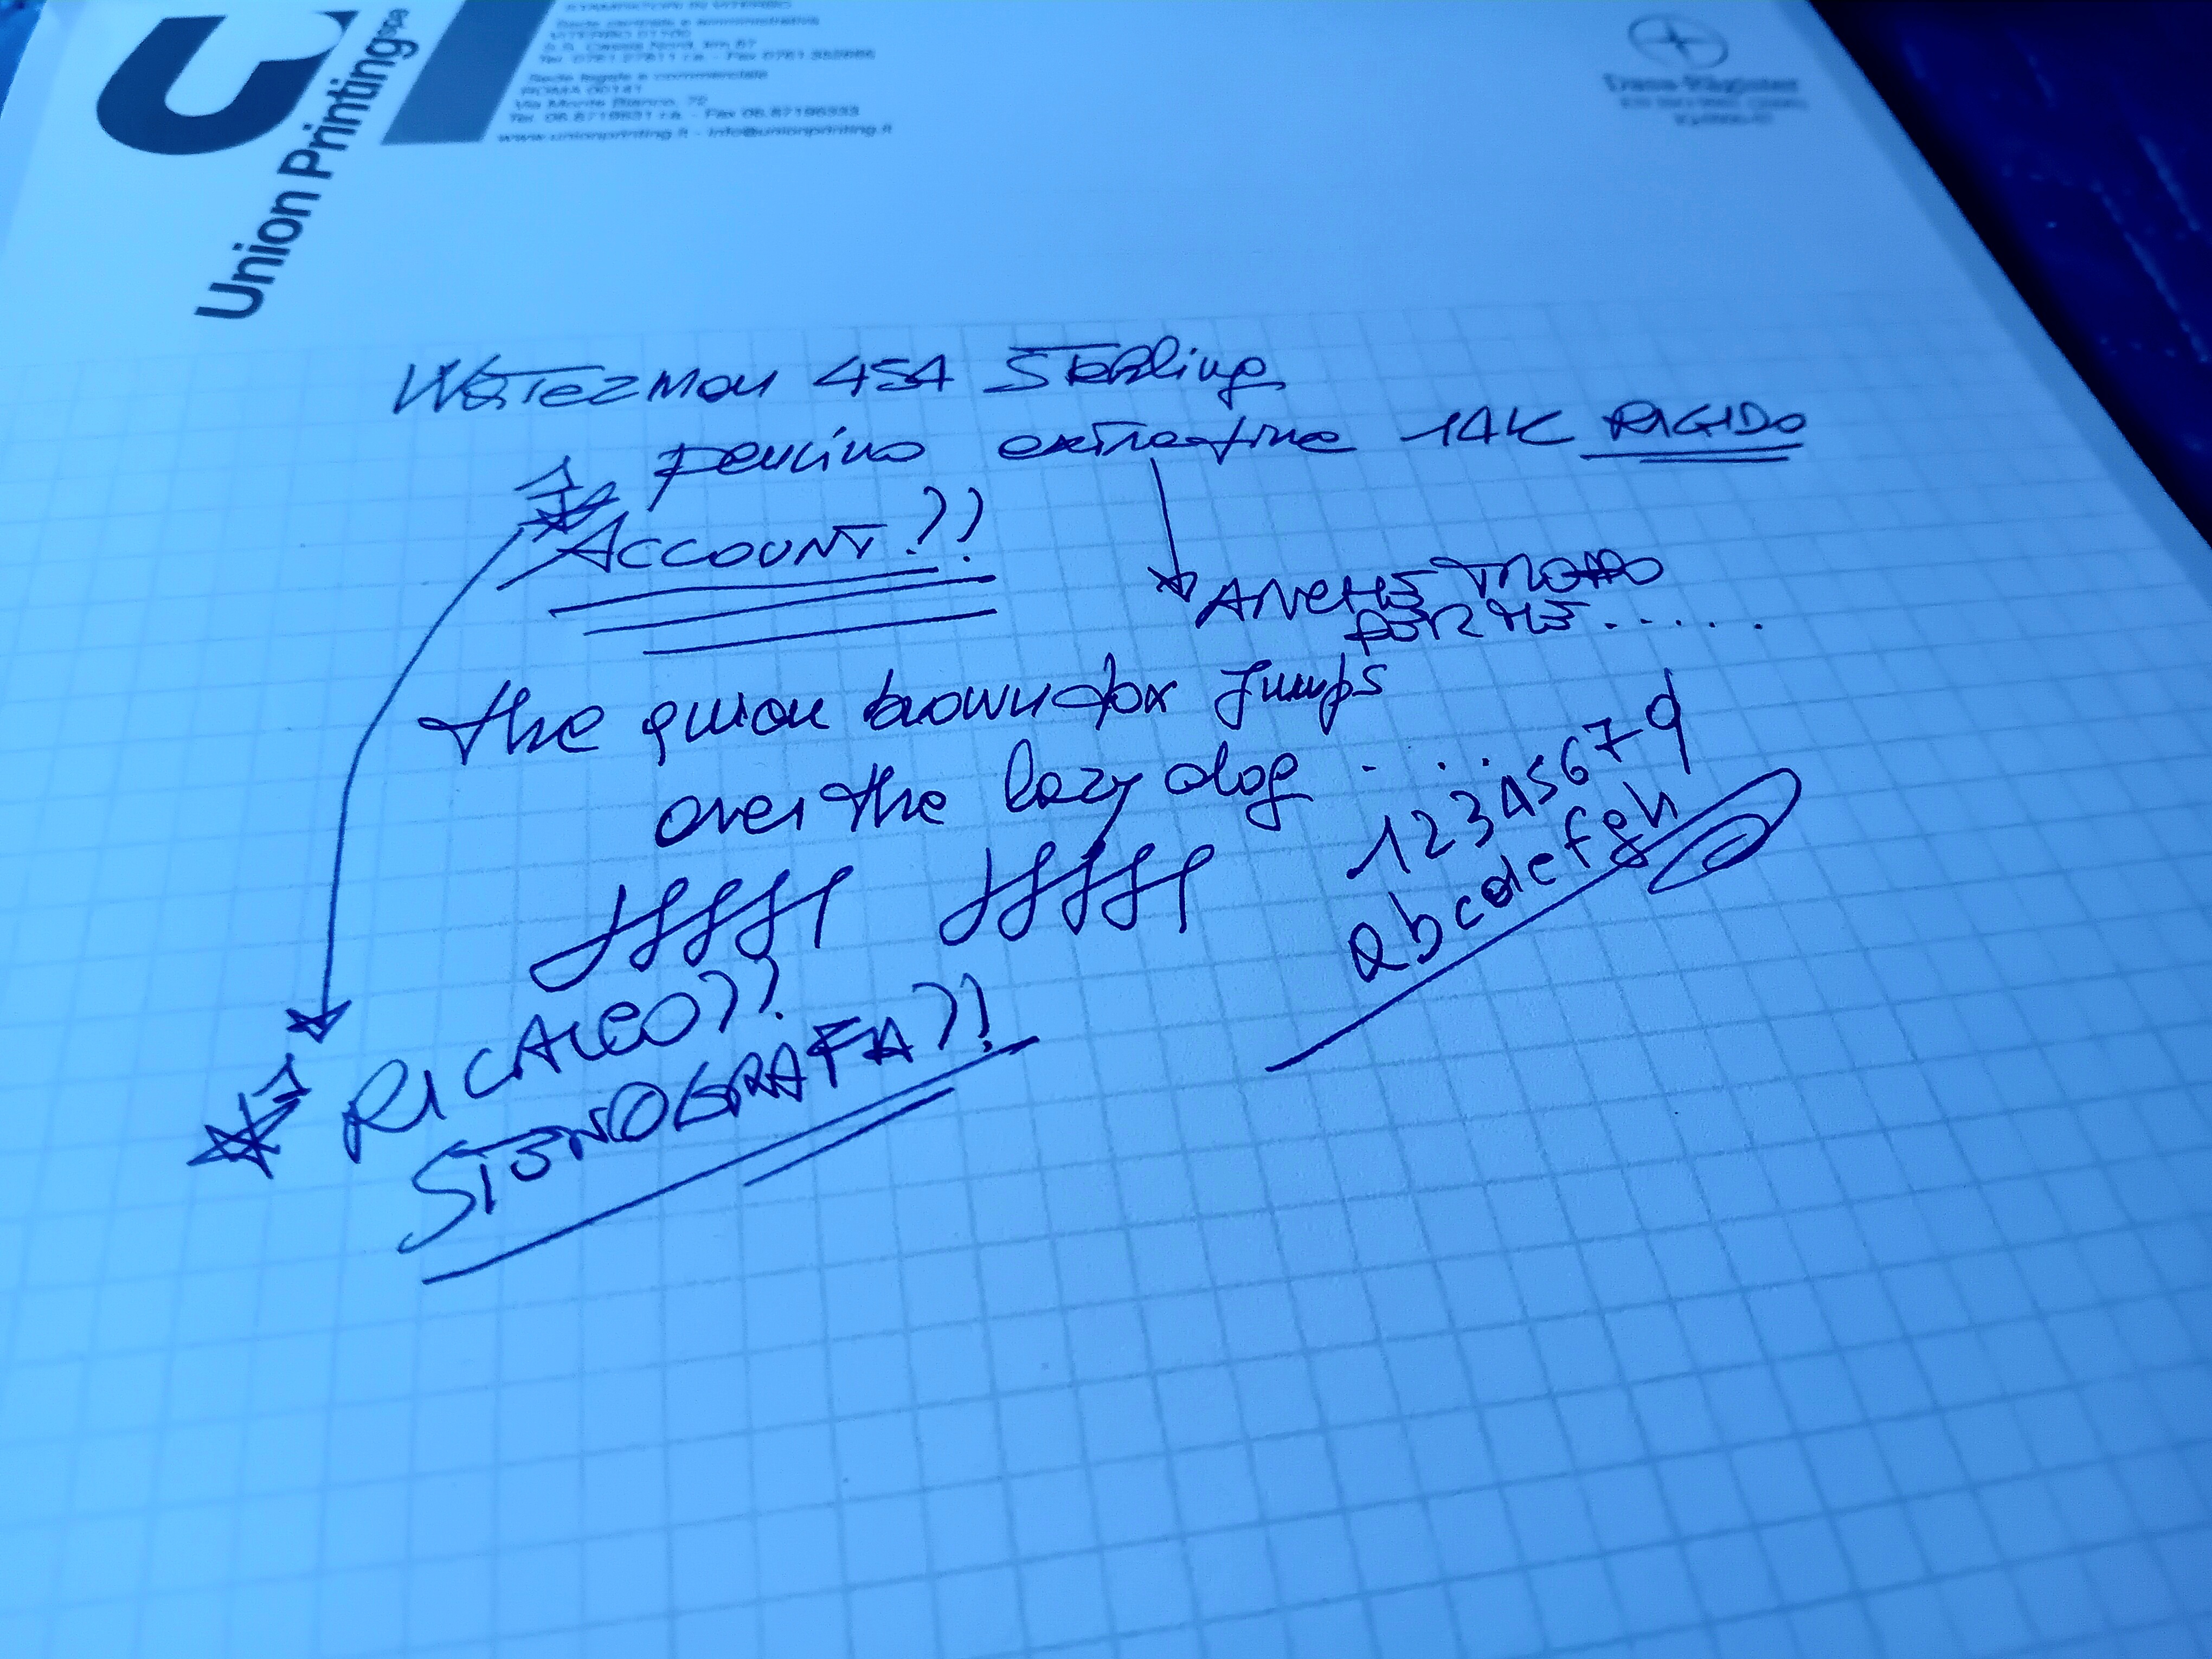 Union Printing spa
Sede centrale e amministrativa
VITERBO 01100
S.S. Cassia Nord, km 87
Tel. 0761 27611 r.a. - Fax 0761
Sede legale e commerciale
ROMA 00141
Via Monte Bianco, 72
Tel. 06.8719631 r.a. - Fax 06.87196333
www.unionprinting.it - info@unionprinting.it
Waterman 454 Sterling
pennino extrafine 14K RIGIDO
ACCOUNT??
ANCHE TROPPO
PER ME.....
the quick brown fox jumps
over the lazy dog ....
12345679
abcdefgh
RICALCO??
STENOGRAFA?!